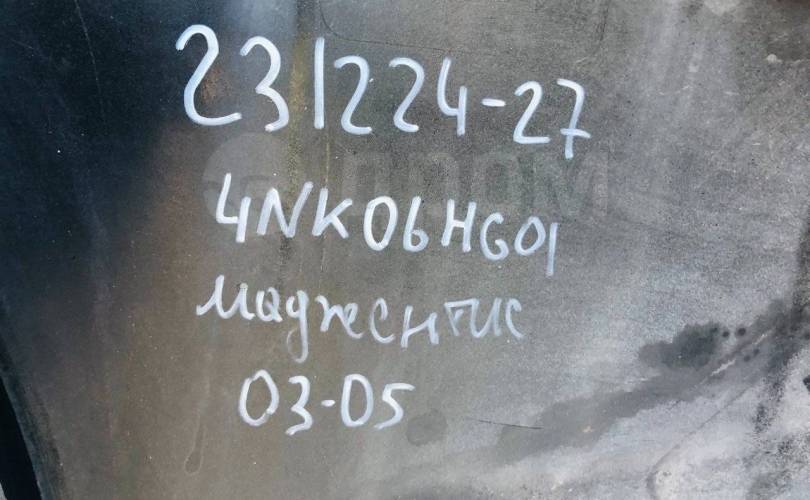 231224-27
4NK06HG01
Маджентис
03-05
ДРОМ